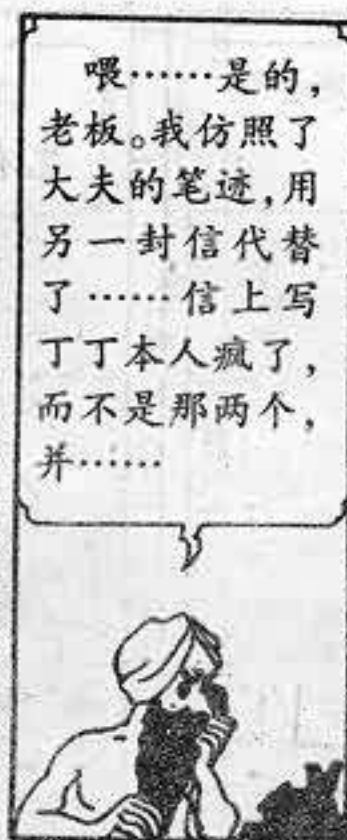 喂……是的,
老板。我仿照了
大夫的笔迹,用
另一封信代替
了……信上写
丁丁本人疯了,
而不是那两个,
并……